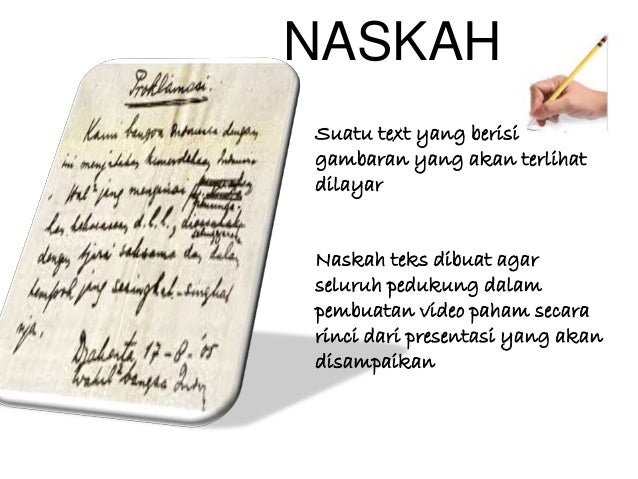 NASKAH
Suatu text yang berisi
gambaran yang akan terlihat
dilayar
Naskah teks dibuat agar
seluruh pedukung dalam
pembuatan video paham secara
rinci dari presentasi yang akan
disampaikan
Proklamasi.
Kami bangsa Indonesia dengan
ini menjatakan kemerdekaan Indonesia
Hal² jang mengenai
d.l.l.,
dengan tjara saksama dan dalam
tempoh jang sesingkat-singkat
nja.
Djakarta, 17-8-'05
Wakil² bangsa Indon